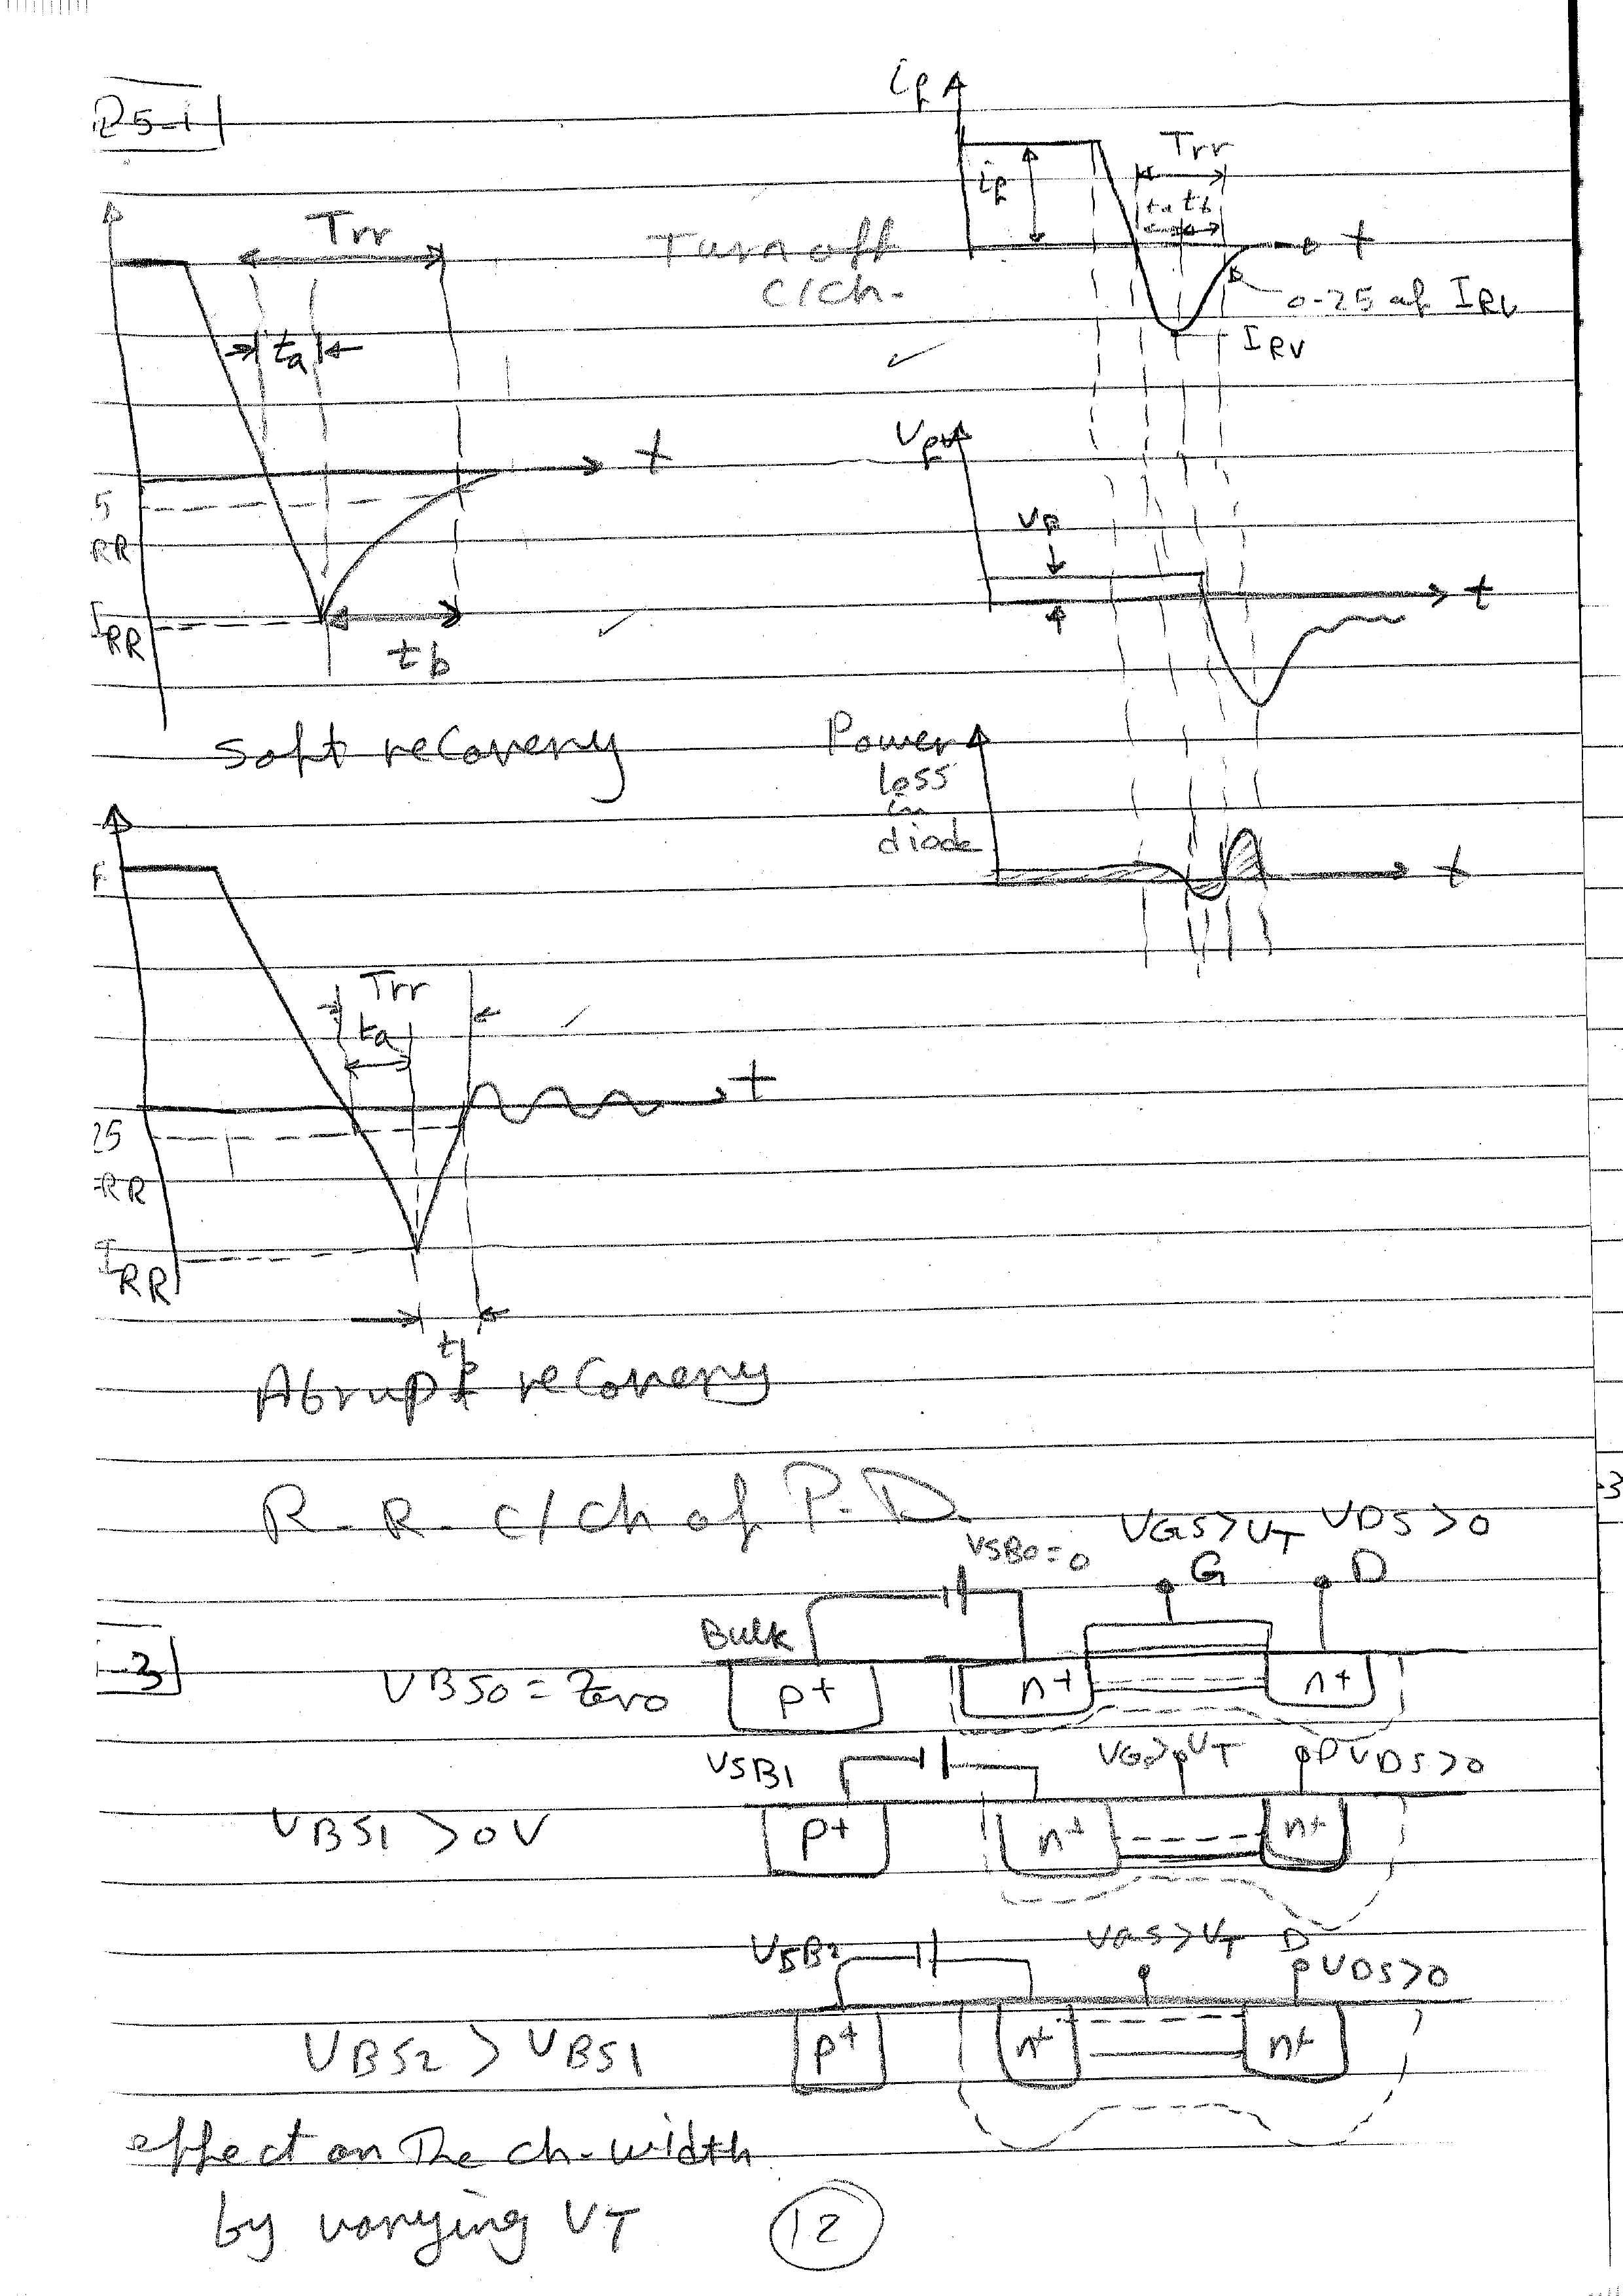 25-1
Trr
ta
t
5
RR
IRR
tb
Soft recovery
Turn off
c/ch.
if
if
Trr
ta tb
t
0.25 of IRV
IRV
Vf
VF
t
Power
loss
in
diode
t
F
Trr
ta
t
25
RR
IRR
tb
Abrupt recovery
R.R. c/ch of P.D.
-3
VSB0=0 VGS>VT VDS>0
G D
Bulk
-3
VBS0 = Zero
p+ n+ n+
VSB1 VGS>VT D VDS>0
VBS1 >0V
p+ n+ n+
VSB2 VGS>VT D VDS>0
VBS2 > VBS1
p+ n+ n+
effect on The ch. width
by varying VT
12